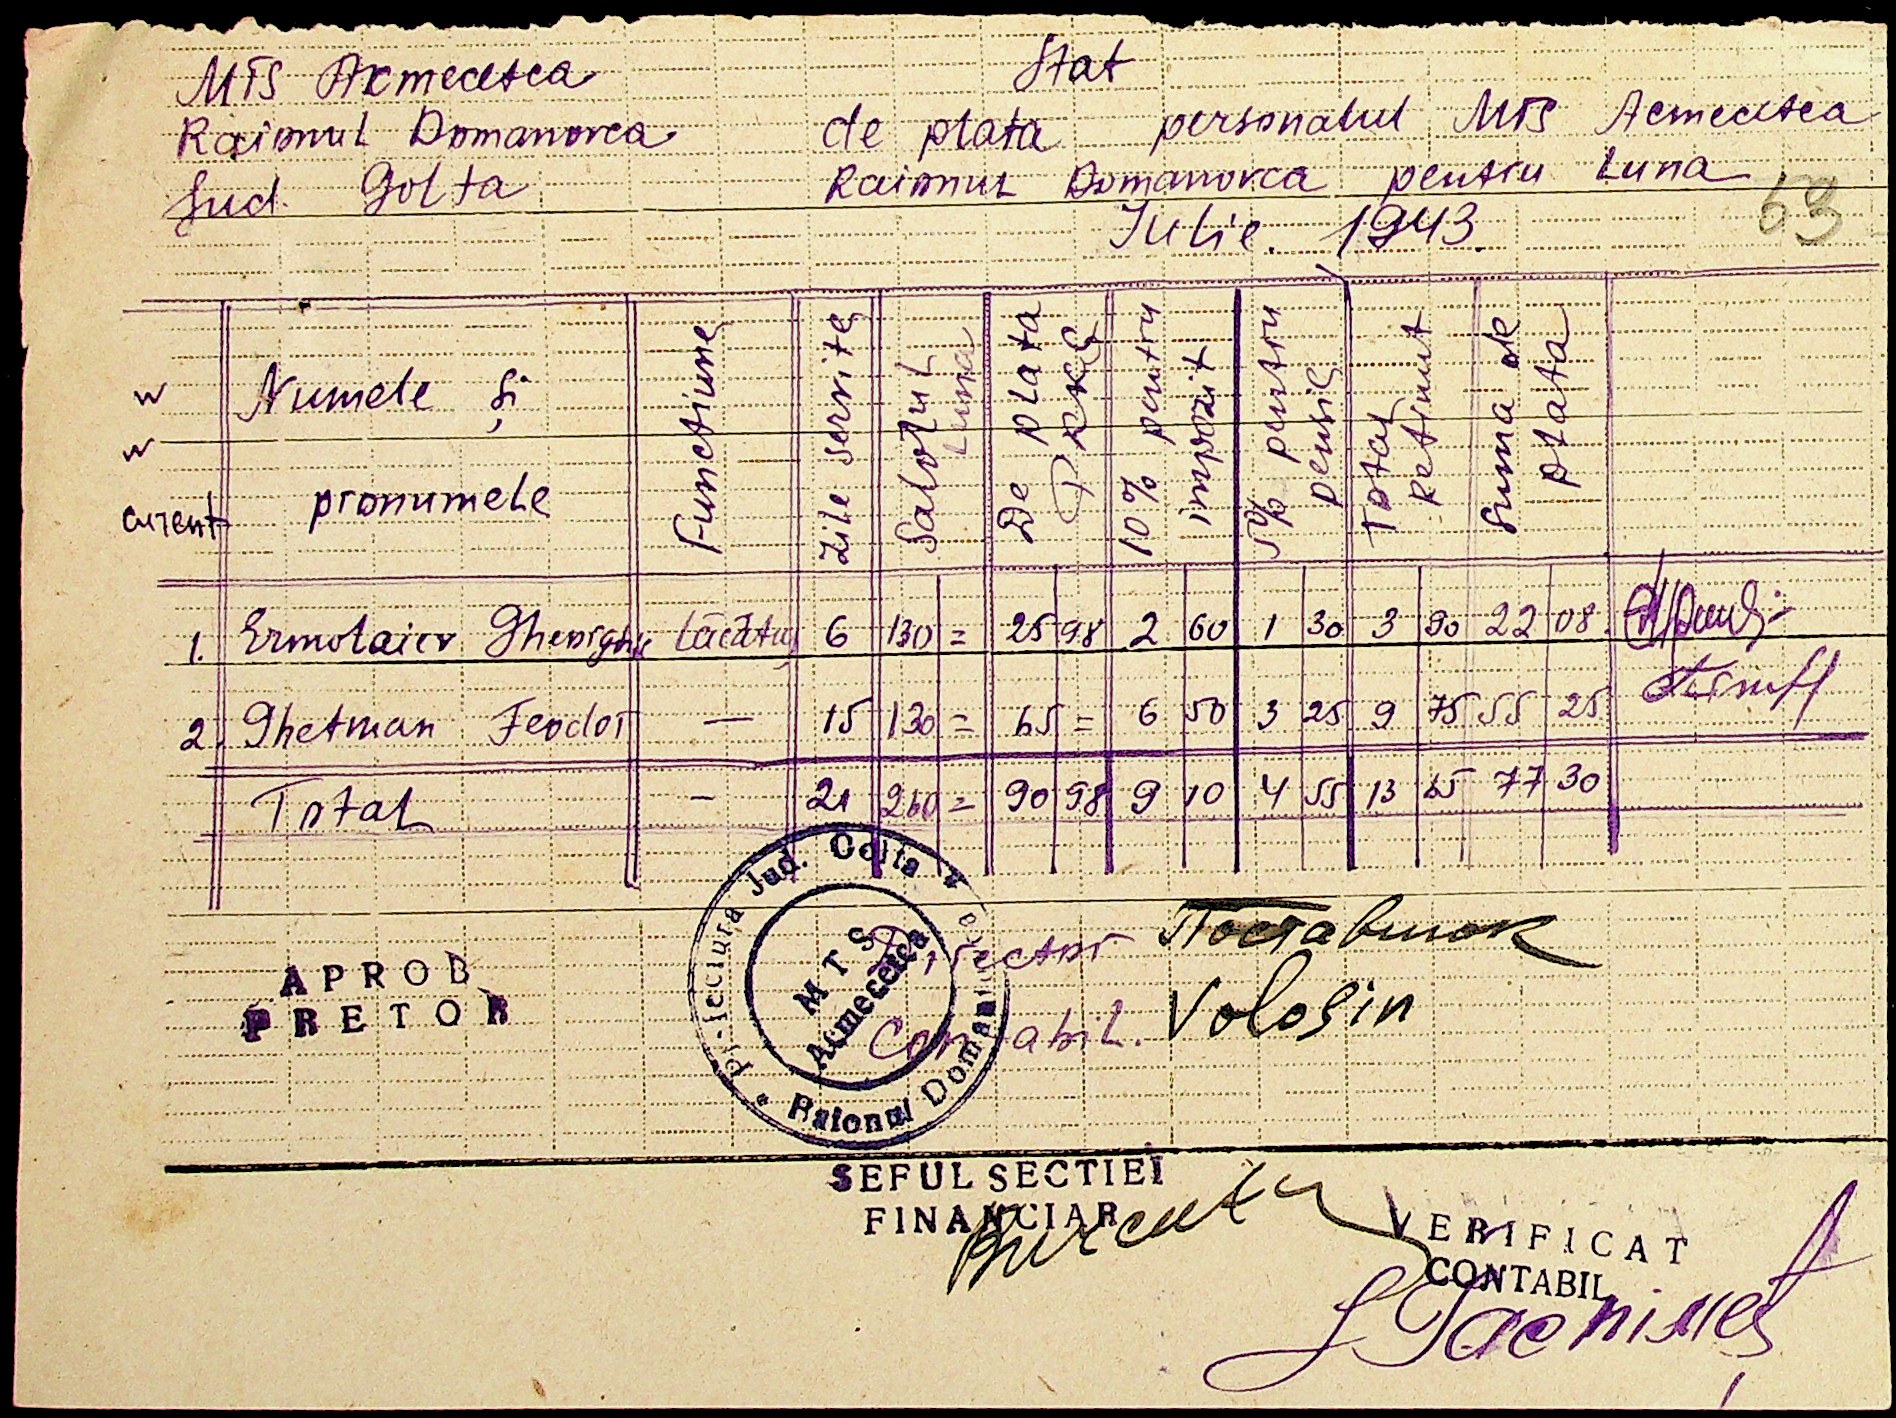 MTS Acmecetea
Raionul Domanovca
Jud. Golta
Stat
de plata personalul MTS Acmecetea
Raionul Domanovca pentru Luna
Iulie. 1943.
63
curent
Numele și pronumele
Funcțiune
Zile servite
Salorul Luna
De plata
10% pentru impozit
5% pentru pensie
Total Retinut
Suma de plata
1. Ermolaicv Gheorghe Lăcătuș 6 130 = 25 98 2 60 1 30 3 90 22 08
2. Ghetman Feodor — 15 130 = 65 = 6 50 3 25 9 75 55 25
Total - 21 260 = 90 98 9 10 4 55 13 65 77 30
APROB
PRETOR
Jud. Golta
Raionul Domanovca
MTS
Acmecetea
Director
Contabil. Volosin
SEFUL SECTIEI
FINANCIAR
VERIFICAT
CONTABIL